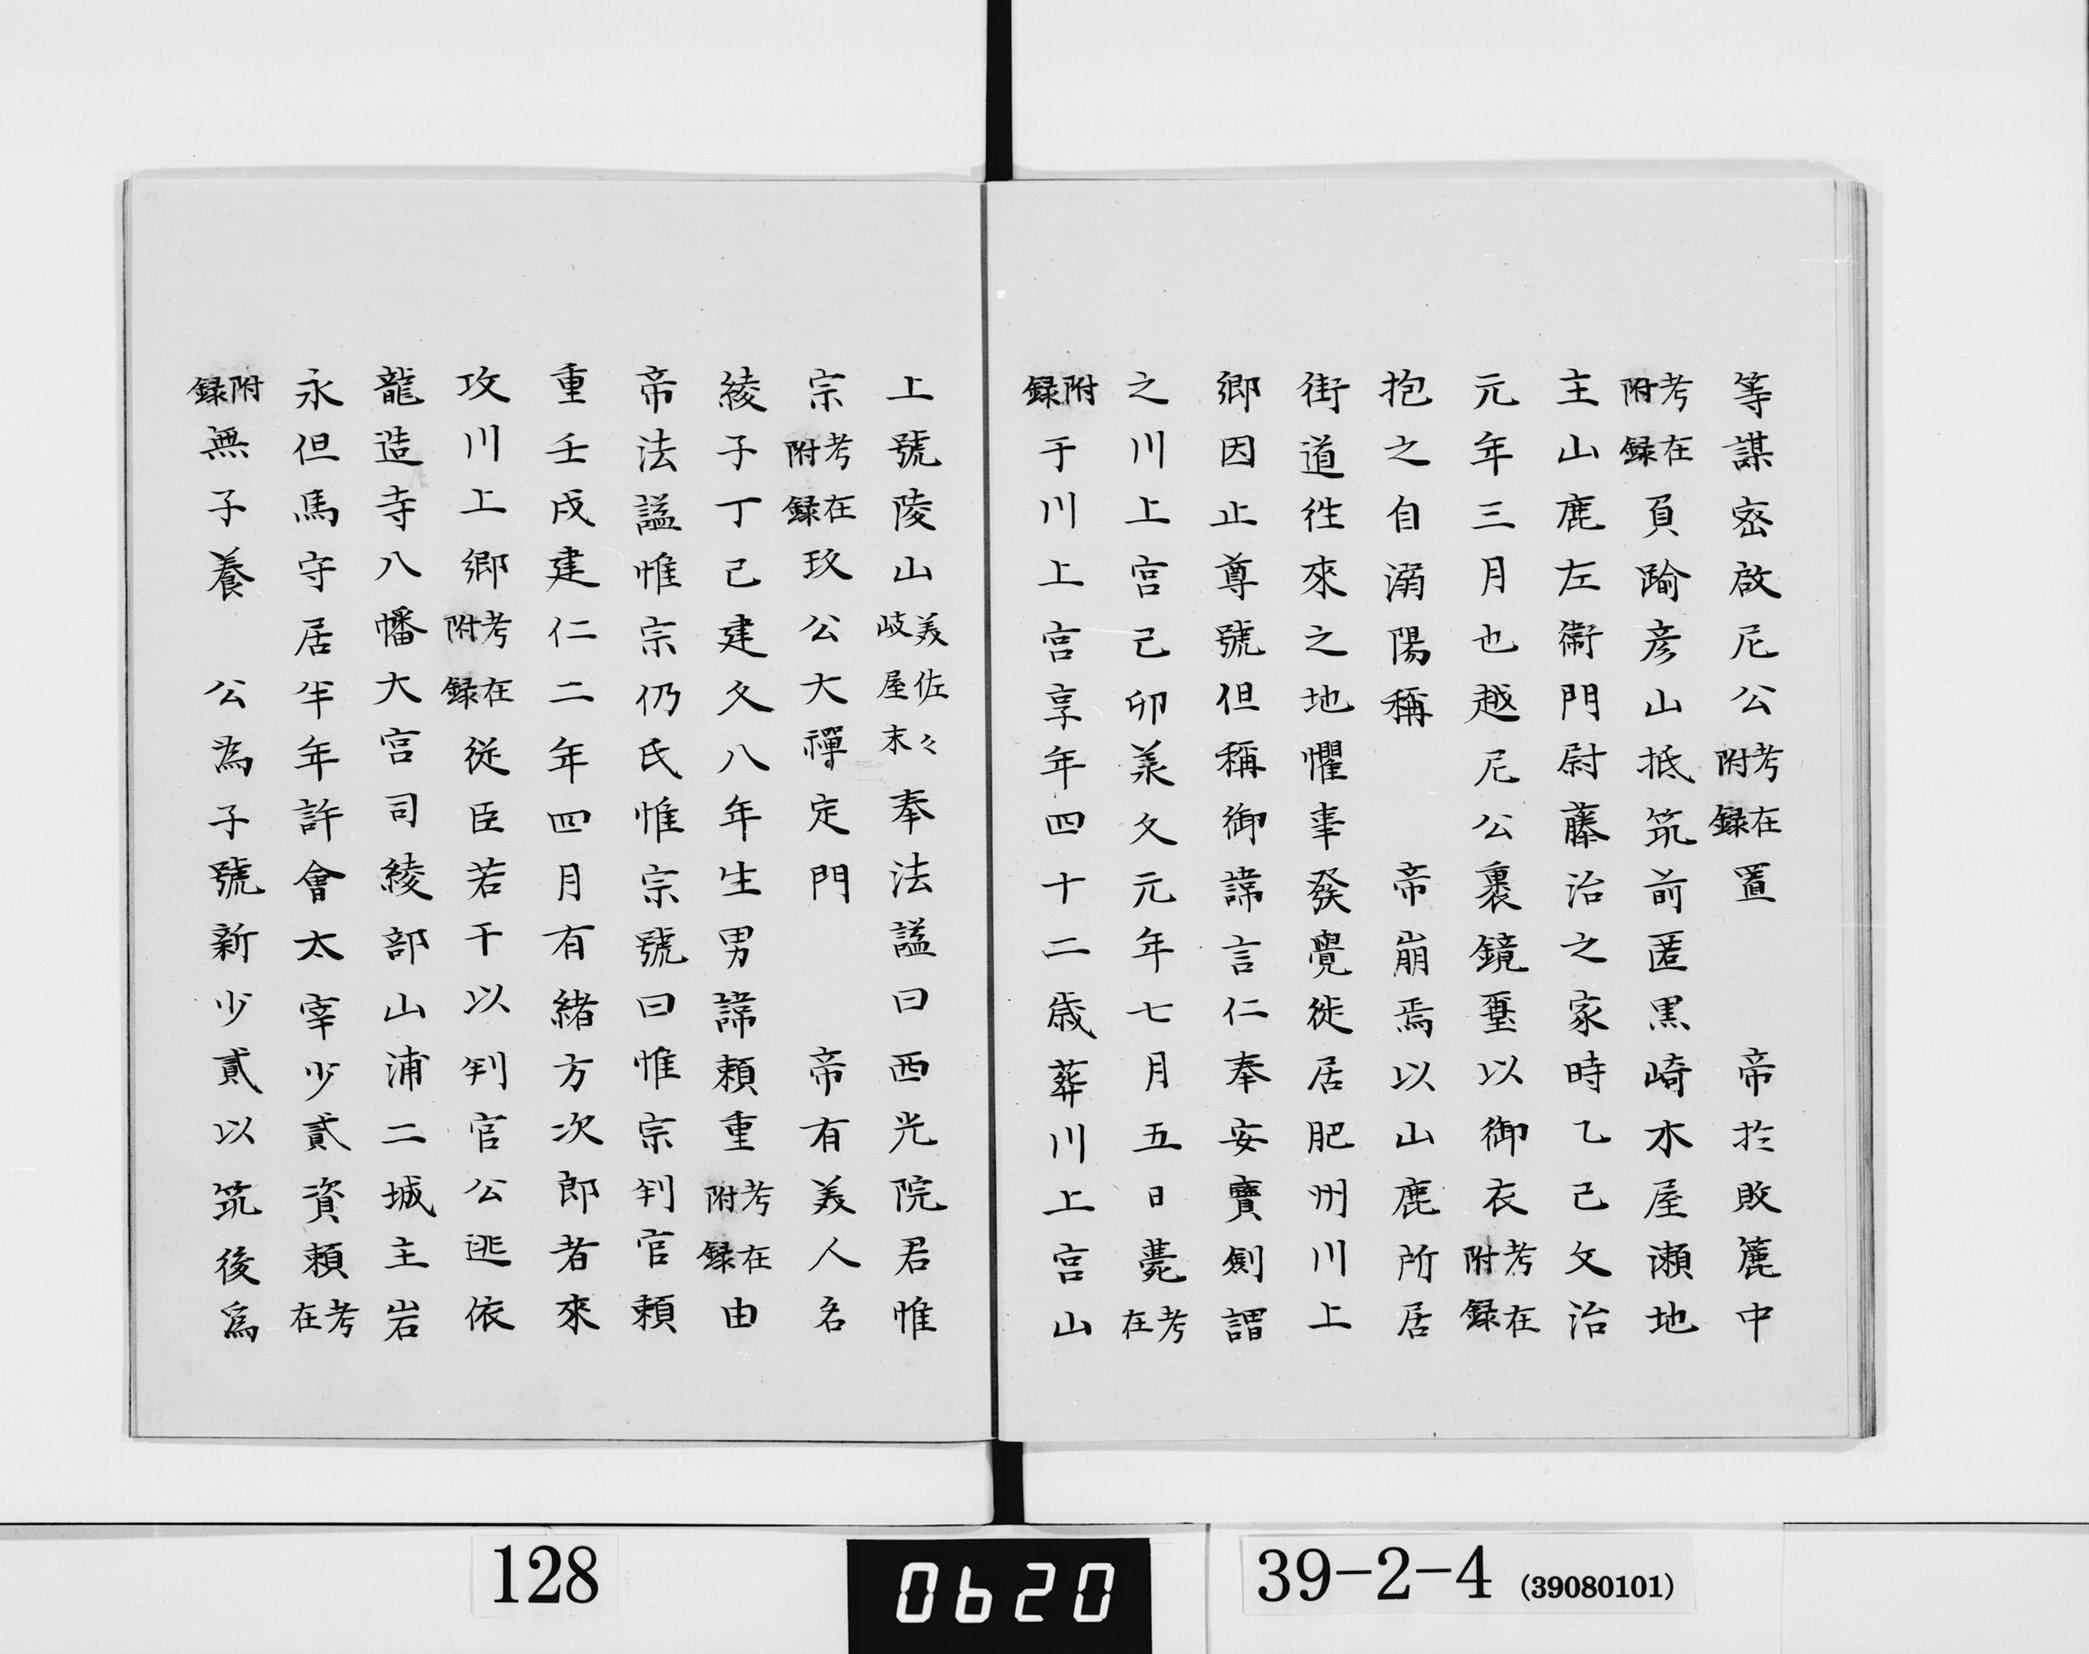 等謀宻啟尼公考在附録置　帝扵敗簏中
考在附録負踰彦山抵筑前匿黒崎木屋瀬地
主山鹿左衛門尉藤治之家時乙己文治
元年三月也越尼公裹鏡璽以御衣考在附録
抱之自溺陽稱　帝崩焉以山鹿所居
街道徃來之地懼事發覺徙居肥州川上
郷因止尊號但稱御諱言仁奉安寶劍謂
之川上宮己卯美久元年七月五日薨考在
附録于川上宮享年四十二歳葬川上宮山
上號陵山美佐々岐屋末奉法諡曰西光院君惟
宗考在附録玖公大禪定門　帝有美人名
綾子丁己建久八年生男諱頼重考在附録由
帝法諡惟宗仍氏惟宗號曰惟宗判官頼
重壬戌建仁二年四月有緒方次郎者來
攻川上郷考在附録従臣若干以判官公逃依
龍造寺八幡大宮司綾部山浦二城主岩
永但馬守居半年許會太宰少貳資頼考在
附録無子養　公為子號新少貳以筑後為
128
0620
39-2-4 (39080101)